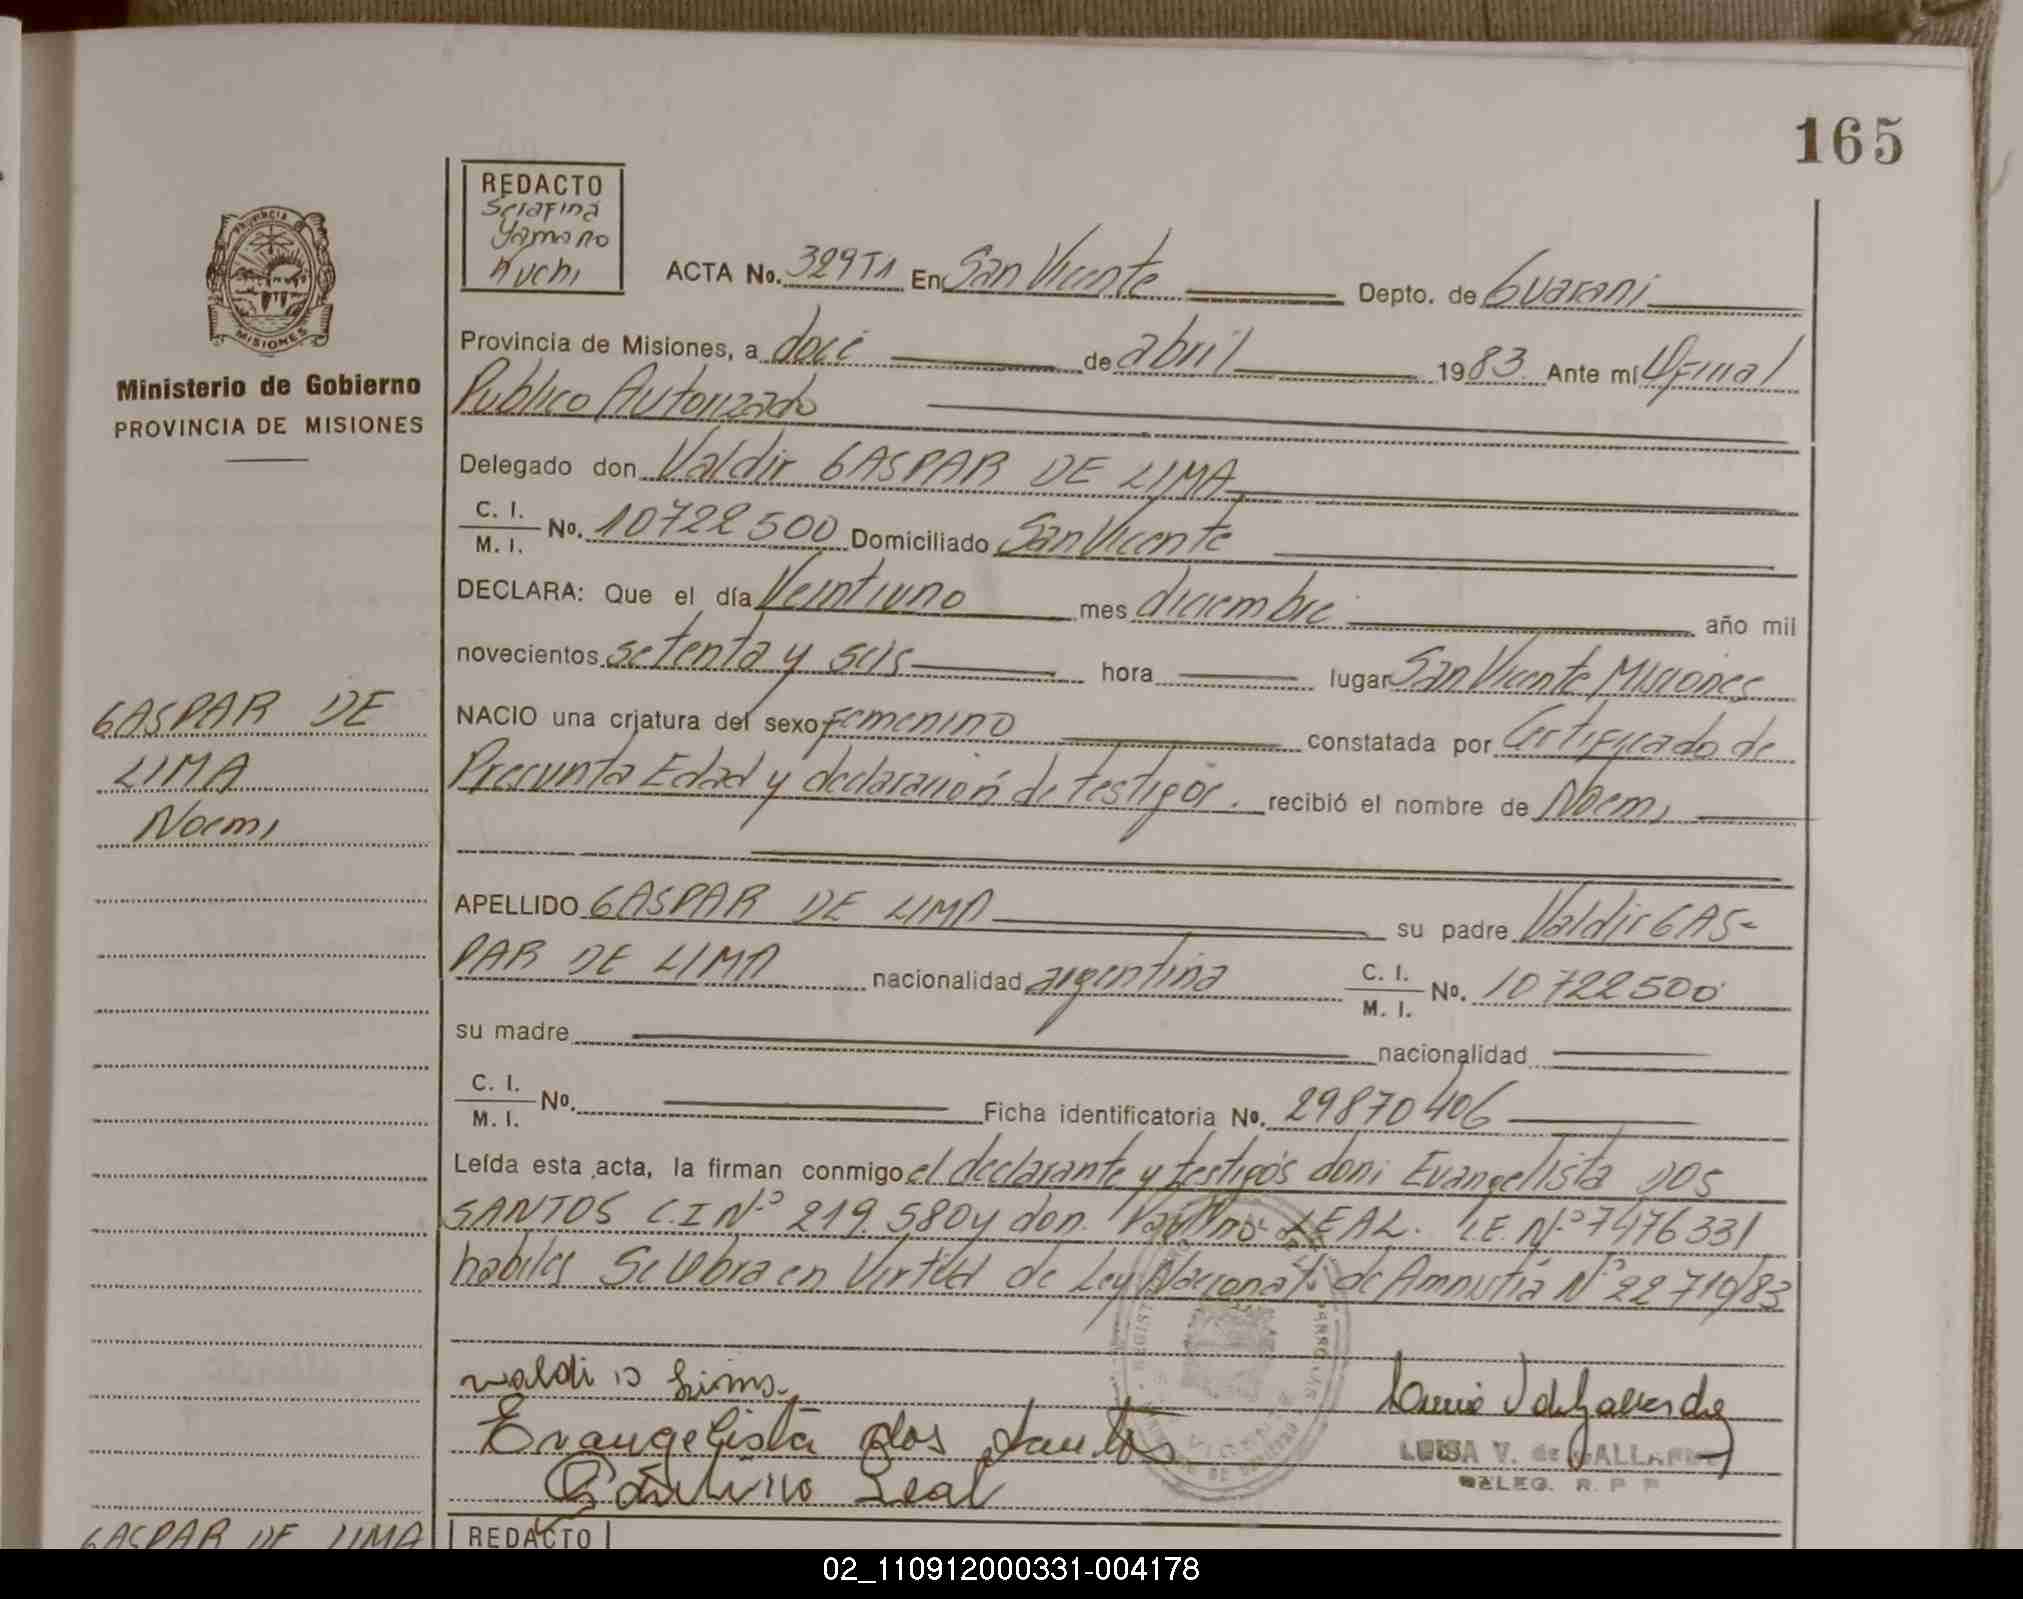 165
REDACTO
Serafina
Yamano
Kuchi
ACTA No. 329T1 En San Vicente Depto. de Guarani
Provincia de Misiones, a doce de abril 1983 Ante mi Oficial
Publico Autorizado
PROVINCIA
MISIONES
Ministerio de Gobierno
PROVINCIA DE MISIONES
Delegado don Valdir GASPAR DE LIMA
C. I.
M. I. No. 10722500 Domiciliado San Vicente
DECLARA: Que el día Veintiuno mes diciembre año mil
novecientos setenta y seis hora lugar San Vicente Misiones
NACIO una criatura del sexo femenino constatada por Certificado de
Presunta Edad y declaración de testigos. recibió el nombre de Noemi
GASPAR DE
LIMA
Noemi
APELLIDO GASPAR DE LIMA su padre Valdir GAS-
PAR DE LIMA nacionalidad argentina C. I.
M. I. No. 10722500
su madre nacionalidad
C. I.
M. I. No. Ficha identificatoria No. 29870406
Leída esta acta, la firman conmigo el declarante y testigos don: Evangelista DOS
SANTOS C.I Nº 219.580 y don. Paulino LEAL. L.E. Nº 7476331
habiles Se labra en Virtud de Ley Nacional de Amnistia Nº 22719/83
Evangelista dos Santos
Leal
LUISA V. de GALLARDO
DELEG. R. P. P
GASPAR DE LIMA
REDACTO
02_110912000331-004178